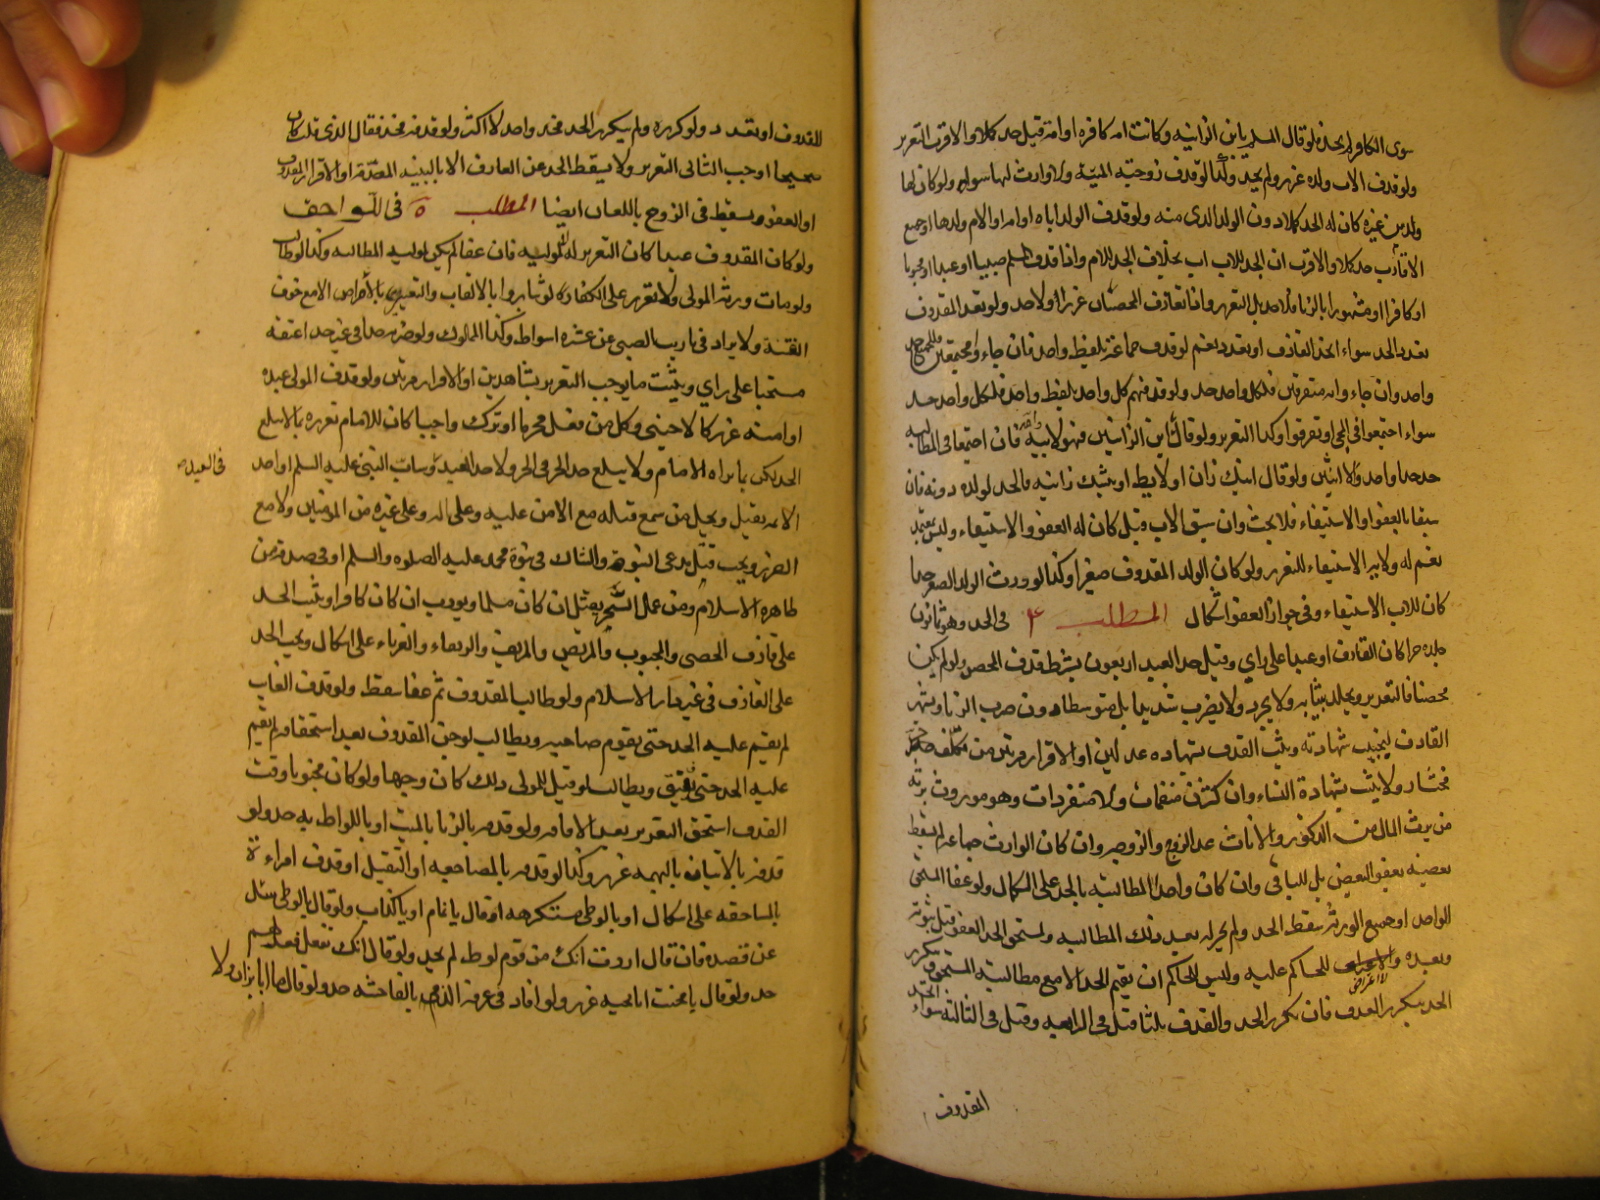 سوى الكافر لم يحد فلو قال المسلم يا بن الزانية وكانت امه كافرة او امة قيل حد كملا والاقرب التعزير
ولو قذف الاب ولده عزر ولم يحد وكذا لو قذف زوجته الميتة ولا وارث لها سواه ولو كان لها
ولد من غيره كان له الحد كملا دون الولد الذي منه ولو قذف الولد اباه او امه او الام ولدها او جميع
الاقارب حد كملا والاقرب ان الجد للاب اب بخلاف الجد للام واذا قذف المسلم صبيا او عبدا او مجنونا
او كافرا او مشهورا بالزنا فلا حد بل التعزير واذا تقاذف المحصنان عزرا ولا حد ولو تعدد المقذوف
تعدد الحد سواء اتحد القاذف او تعدد نعم لو قذف جماعة بلفظ واحد فان جاءوا مجتمعين فللجميع حد
واحد وان جاءوا به متفرقين فلكل واحد حد ولو قذفهم كل واحد بلفظ واحد فلكل واحد حد
سواء اجتمعوا في المجيء او تفرقوا وكذا التعزير ولو قال يا ابن الزانيين فهو لابيه وامه فان اجتمعا في المطالبة
حد حدا واحدا والا اثنين ولو قال ابنك زان او لايط او بنتك زانية فالحد لولده دونه فان
سبقا بالعفو او الاستيفاء فلا بحث وان سبق الاب قيل كان له العفو والاستيفاء وليس بمعتمد
نعم له ولاية الاستيفاء للتعزير ولو كان الولد المقذوف صغيرا وكذا لو ورث الولد الصغير حدا
كان للاب الاستيفاء وفي جواز العفو اشكال المطلب ٤ في الحد وهو ثمانون
جلدة حرا كان القاذف او عبدا على راي وقيل حد العبد اربعون بشرط قذف المحصن ولو لم يكن
محصنا فالتعزير ويجلد بثيابه ولا يجرد ولا يضرب شديدا بل متوسطا دون ضرب الزنا ويشهر
القاذف ليجتنب شهادته ويثبت القذف بشهادة عدلين او الاقرار مرتين من مكلف حر
مختار ولا يثبت بشهادة النساء وان كثرن منضمات ولا منفردات وهو موروث يرثه
من يرث المال من الذكور والاناث عدا الزوج والزوجة وان كان الوارث جماعة لم يسقط
بعضه بعفو البعض بل للباقي وان كان واحدا المطالبة بالحد على الكمال ولو عفا المستحق
الواحد او جميع الورثة سقط الحد ولم يجز له بعد ذلك المطالبة ولمستحق الحد العفو قبل ثبوته
وبعده والاعتراض للحاكم عليه وليس للحاكم ان يقيم الحد الا مع مطالبة المستحق ويتكرر
الاعتراض
الحد بتكرر القذف فان تكرر الحد والقذف ثلثا قتل في الرابعة وقيل في الثالثة سواء اتحد
المقذوف
المقذوف او تعدد ولو كرره ولم يتكرر الحد فحد واحد لا اكثر ولو قذفه فحد فقال الذي قلت كان
صحيحا اوجب الثاني التعزير ولا يسقط الحد عن القاذف الا بالبينة المصدقة او الاقرار المقذوف
او العفو ويسقط في الزوج باللعان ايضا المطلب ٥ في اللواحق
ولو كان المقذوف عبدا كان التعزير له لا لمولاه فان عفا لم يكن لمولاه المطالبة وكذا لو طالب
ولو مات ورثه المولى ولا تعزير على الكفار لو تنابزوا بالالقاب والتعيير بالأمراض الا مع خوف
الفتنة ولا يزاد في تاديب الصبي عن عشرة اسواط وكذا المملوك ولو ضربه حدا في غير حد اعتقه
مستحبا على راي ويثبت ما يوجب التعزير بشاهدين او الاقرار مرتين ولو قذف المولى عبده
او امته عزر كالاجنبي وكل من فعل محرما او ترك واجبا كان للامام تعزيره بما لا يبلغ
الحد لكن بما يراه الامام ولا يبلغ حد الحر في الحر ولا حد العبد وساب النبي عليه السلم او احد
في العبد
الائمة يقتل ويحل من سمع قتله مع الامن عليه وعلى ماله وعلى غيره من المؤمنين ولا مع
الضرر ويجب قتل مدعي النبوة والشاك في نبوة محمد عليه الصلوة والسلم او في صدقه من
ظاهره الاسلام ومن عمل السحر يقتل ان كان مسلما ويؤدب ان كان كافرا ويثبت الحد
على قاذف الخصي والمجبوب والمريض والمريضة والرتقاء والقرناء على اشكال ويجب الحد
على القاذف في غير دار الاسلام ولو طالب المقذوف ثم عفا سقط ولو قذف الغايب
لم يقم عليه الحد حتى يقدم صاحبه ويطالب لو جن المقذوف بعد استحقاقه لم يقم
عليه الحد حتى يفيق ويطالب لو قيل للولي ذلك كان وجها ولو كان مجنونا وقت
القذف استحق التعزير بعد الافاقة ولو قذفه بالزنا بالميت او باللواط به حد ولو
قذفه بالاتيان بالبهيمة عزر وكذا لو قذفه بالمضاجعة او التقبيل او قذف امراءة
بالمساحقة على اشكال او بالوطي مستكرهة او قال يا نمام او يا كذاب ولو قال يا لوطي سئل
عن قصده فان قال اردت انك من قوم لوط لم يحد ولو قال انك تفعل فعلهم
حد ولو قال يا مخنث عزر ولو افاد في عرفه القذف بالفاحشة حد ولو قال ما انا بزان ولا